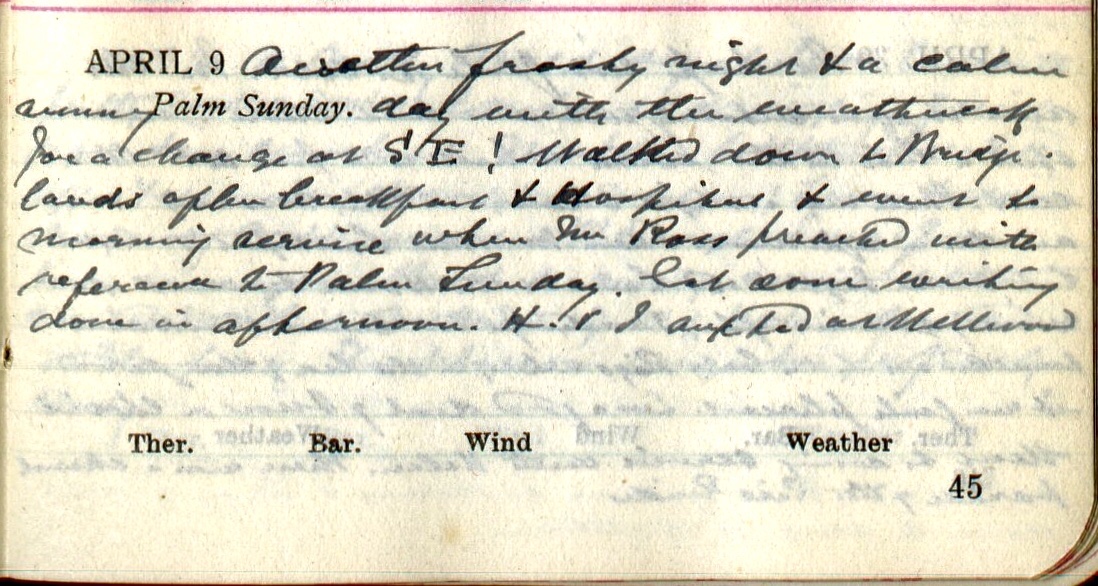 APRIL 9 Another frosty night & a calm
sunny Palm Sunday. day with the weathercock
for a change at S E ! Walked down to Bridge-
lands after breakfast & Hospital & went to
morning service when Mr Ross preached with
reference to Palm Sunday. Got some writing
done in afternoon. H. & I at
Ther. Bar. Wind Weather
45